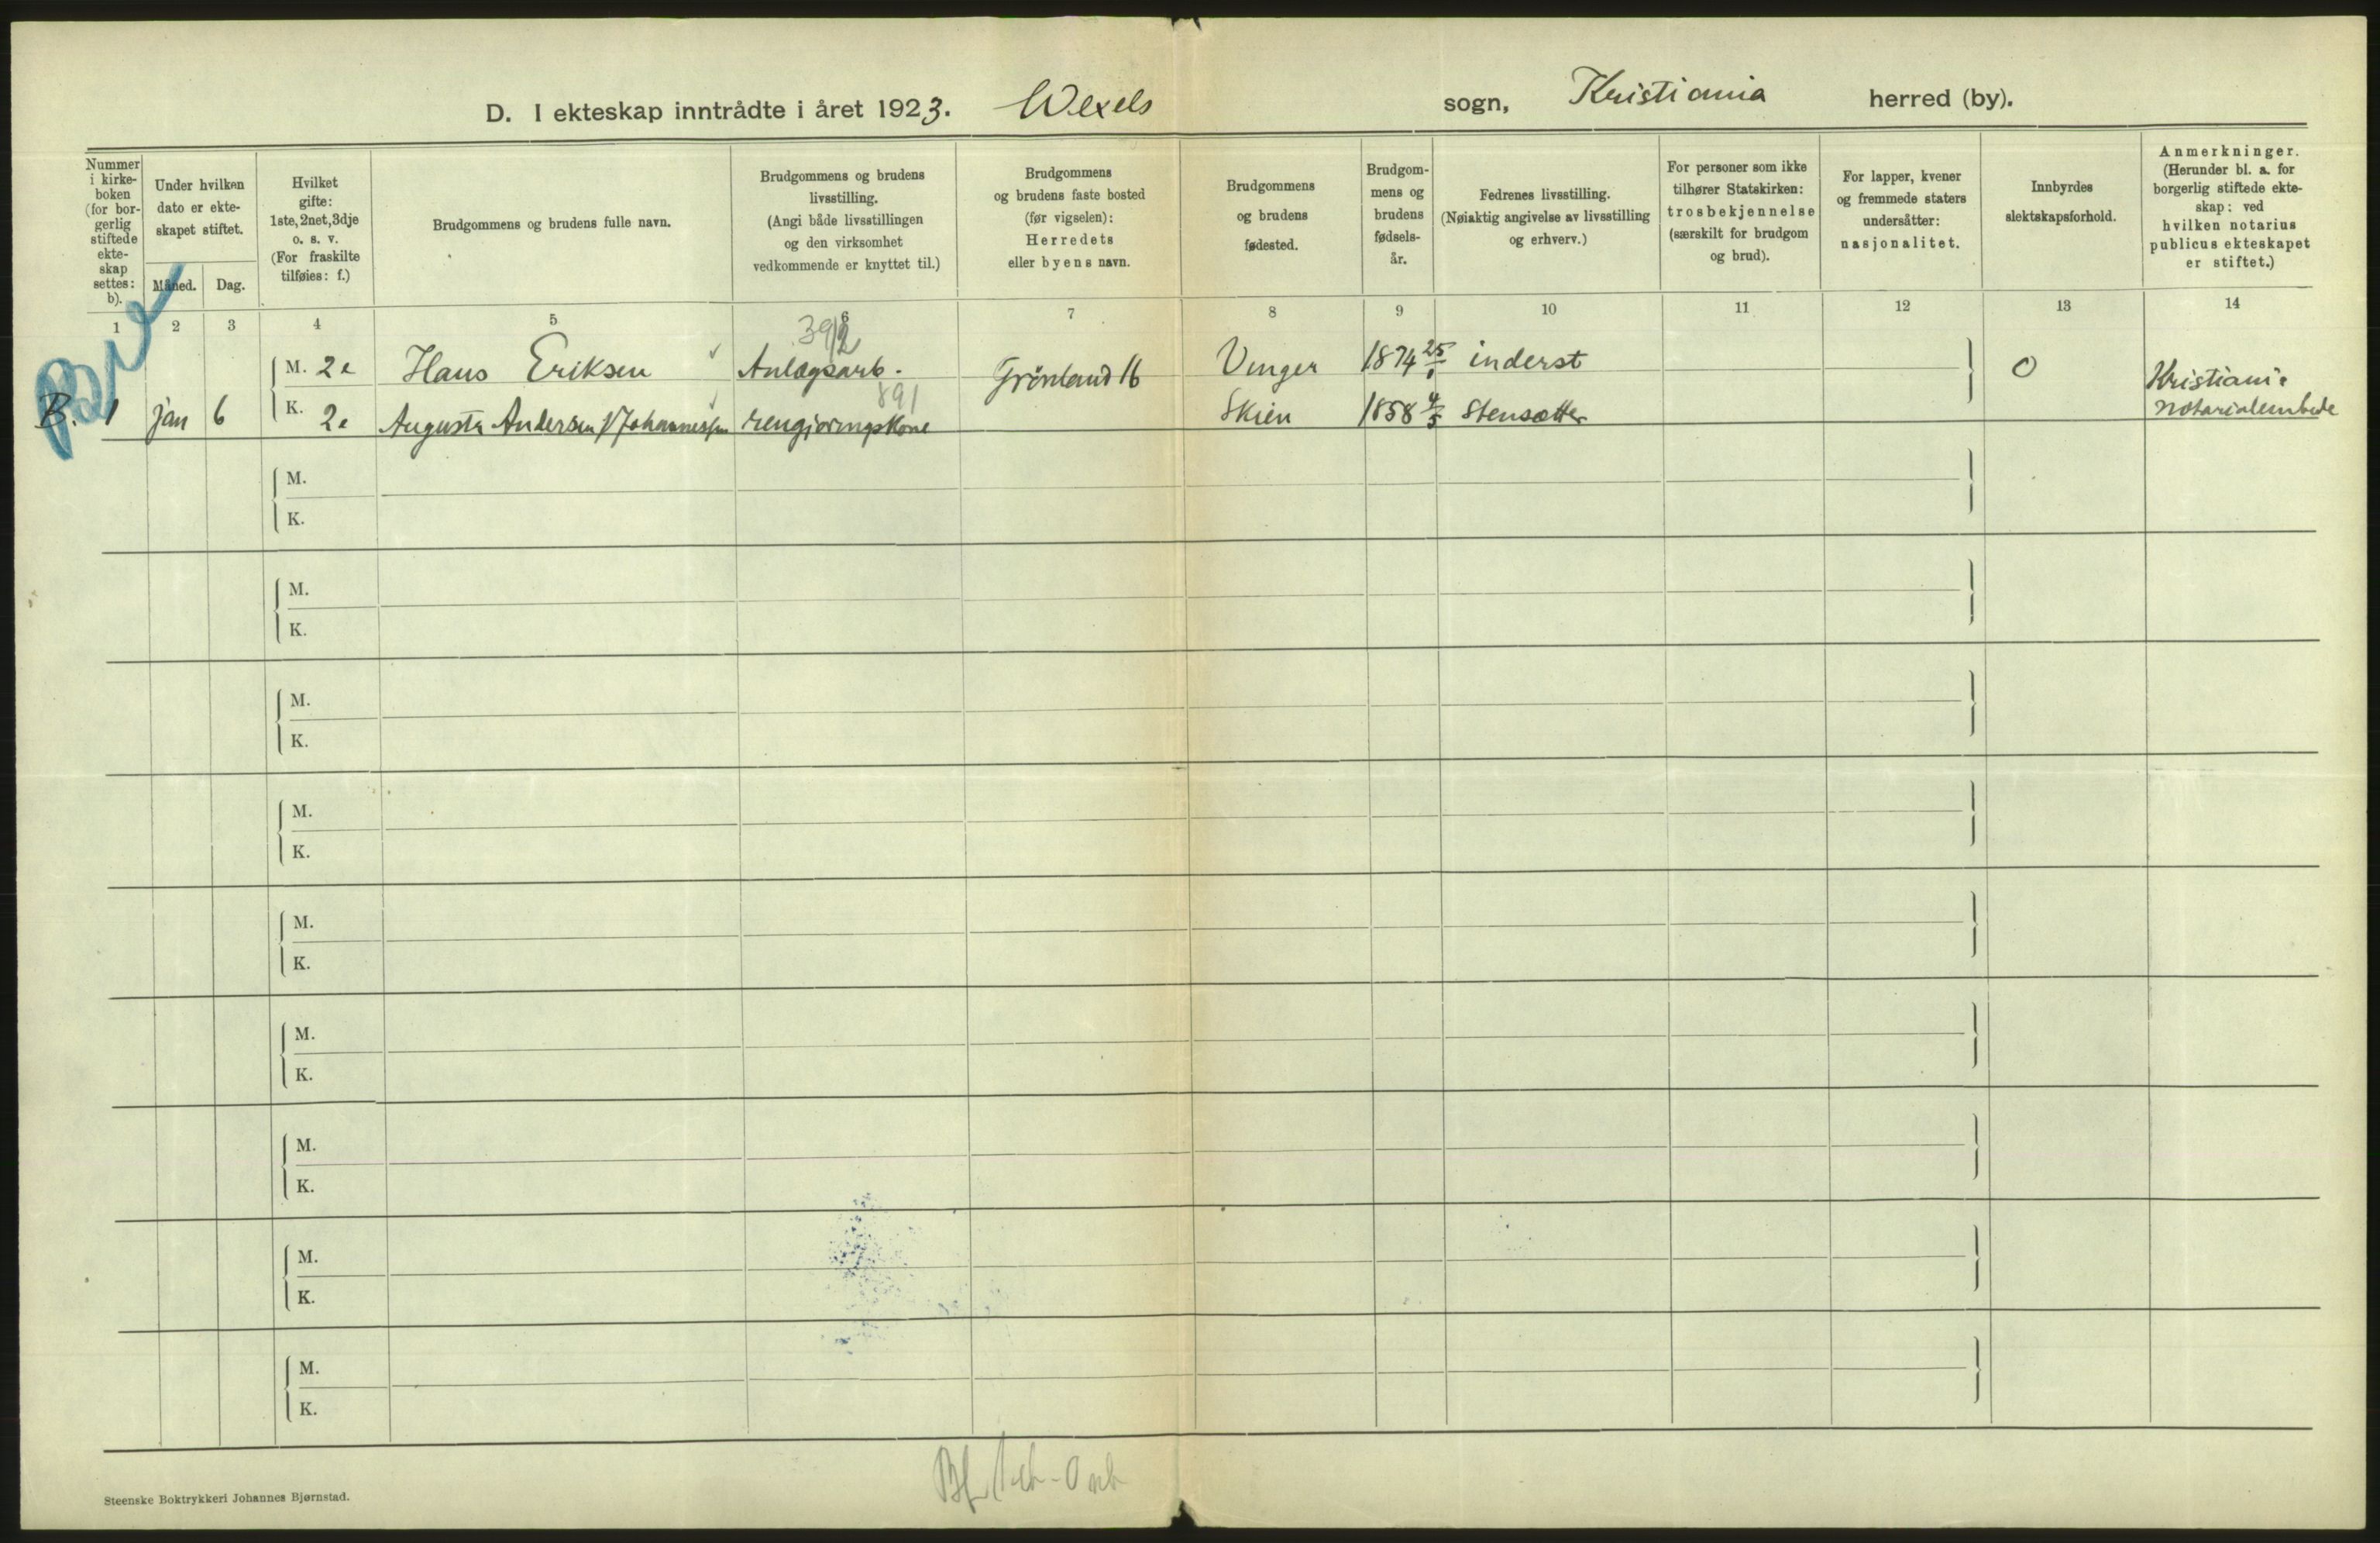 D. I ekteskap inntrådte i året 1923. Wexels sogn, Kristiania herred (by).
Nummer i kirke-boken (for bor-gerlig stiftede ekte-skap settes: b).
Under hvilken dato er ekte-skapet stiftet.
Måned. Dag.
Hvilket gifte: 1ste, 2net, 3dje o. s. v. (For fraskilte tilføies: f.)
Brudgommens og brudens fulle navn.
Brudgommens og brudens livsstilling. (Angi både livsstillingen og den virksomhet vedkommende er knyttet til.)
Brudgommens og brudens faste bosted (før vigselen): Herredets eller byens navn.
Brudgommens og brudens fødested.
Brudgom-mens og brudens fødsels-år.
Fedrenes livsstilling. (Nøiaktig angivelse av livsstilling og erhverv.)
For personer som ikke tilhører Statskirken: trosbekjennelse (særskilt for brudgom og brud).
For lapper, kvener og fremmede staters undersåtter: nasjonalitet.
Innbyrdes slektskapsforhold.
Anmerkninger. (Herunder bl. a. for borgerlig stiftede ekte-skap: ved hvilken notarius publicus ekteskapet er stiftet.)
1 2 3 4 5 6 7 8 9 10 11 12 13 14
392
M. 2e Hans Eriksen Anlægsarb. Grønland 16 Vinger 1874 25/1 inderst 0 Kristiania
891
B. 1 jan 6 K. 2e Augusta Andersen f Johannessen rengjøringskone Skien 1858 4/5 Stensætter notarialembede
M.
K.
M.
K.
M.
K.
M.
K.
M.
K.
M.
K.
M.
K.
M.
K.
M.
K.
Steenske Boktrykkeri Johannes Bjørnstad.